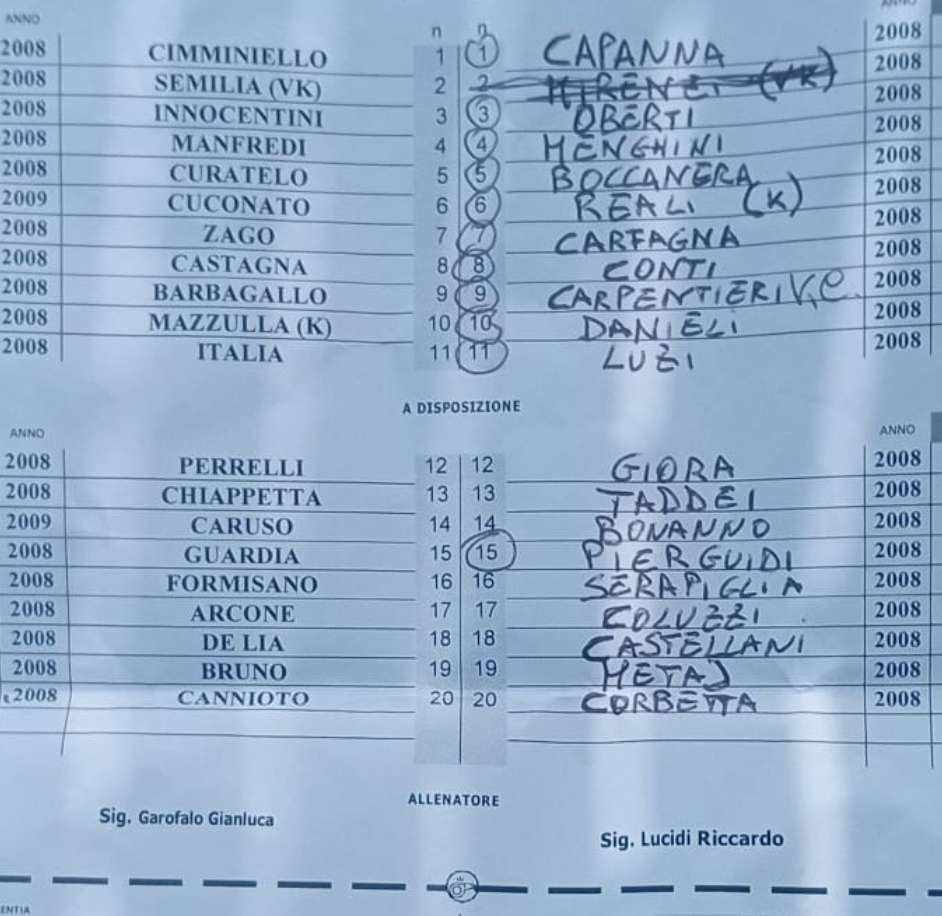 ANNO n n ANNO
2008
2008 CIMMINIELLO 1 1 CAPANNA 2008
2008 SEMILIA (VK) 2 2 MIRENZI (VK) 2008
2008 INNOCENTINI 3 3 OBERTI 2008
2008 MANFREDI 4 4 MENGHINI 2008
2008 CURATELO 5 5 BOCCANERA 2008
2009 CUCONATO 6 6 REALI (K) 2008
2008 ZAGO 7 7 CARFAGNA 2008
2008 CASTAGNA 8 8 CONTI 2008
2008 BARBAGALLO 9 9 CARPENTIERI V.C. 2008
2008 MAZZULLA (K) 10 10 DANIELI 2008
2008 ITALIA 11 11 LUZI 2008
A DISPOSIZIONE
ANNO ANNO
2008 PERRELLI 12 12 GIORA 2008
2008 CHIAPPETTA 13 13 TADDEI 2008
2009 CARUSO 14 14 BONANNO 2008
2008 GUARDIA 15 15 PIERGUIDI 2008
2008 FORMISANO 16 16 SERAPIGLIA 2008
2008 ARCONE 17 17 COLUZZI 2008
2008 DE LIA 18 18 CASTELLANI 2008
2008 BRUNO 19 19 METAJ 2008
2008 CANNIOTO 20 20 CORBETTA 2008
ALLENATORE
Sig. Garofalo Gianluca
Sig. Lucidi Riccardo